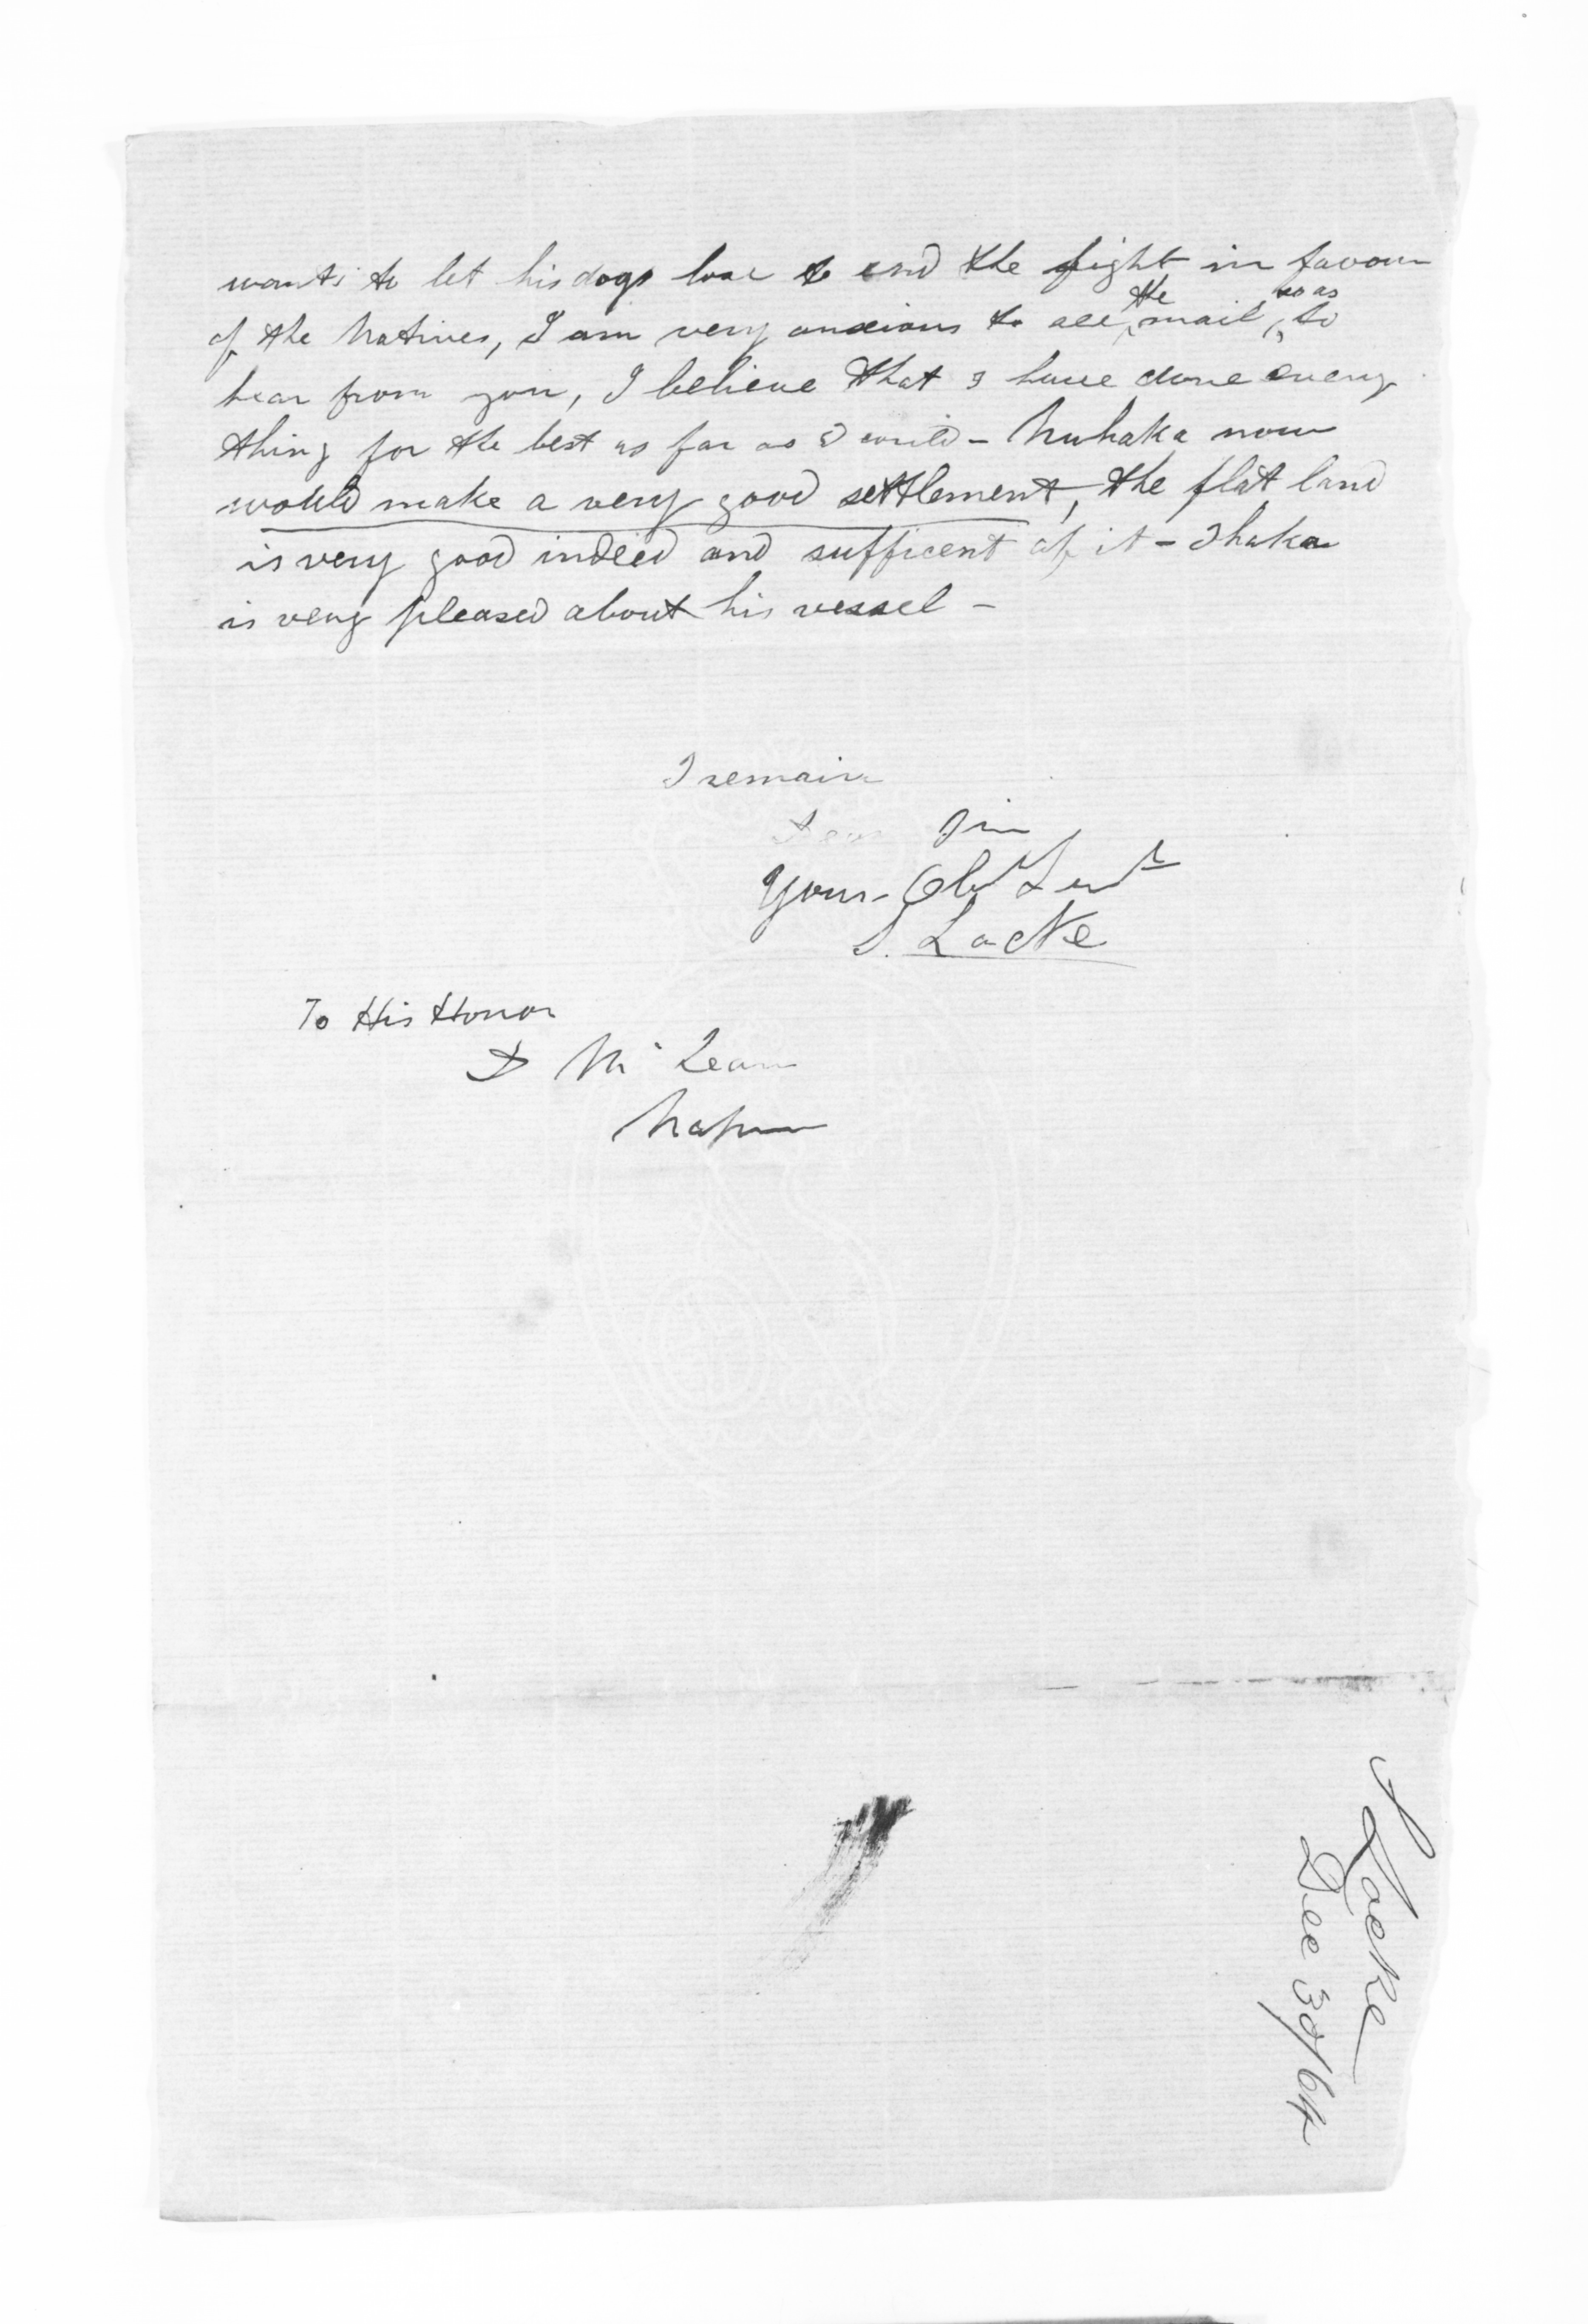 wants to let his dogs lose to end the fight in favour
of the Natives, I am very anxious to see the mail, so as to
hear from you, I believe that I have done every
thing for the best as far as I could - Nuhaka now
would make a very good settlement, the flat land
is very good indeed and sufficent of it - Ihaka
is very pleased about his vessel -
I remain
Dear Sir
Your Obt Servt
S. Locke
To His Honor
D McLean
Napier
S Locke
Dec 30/64